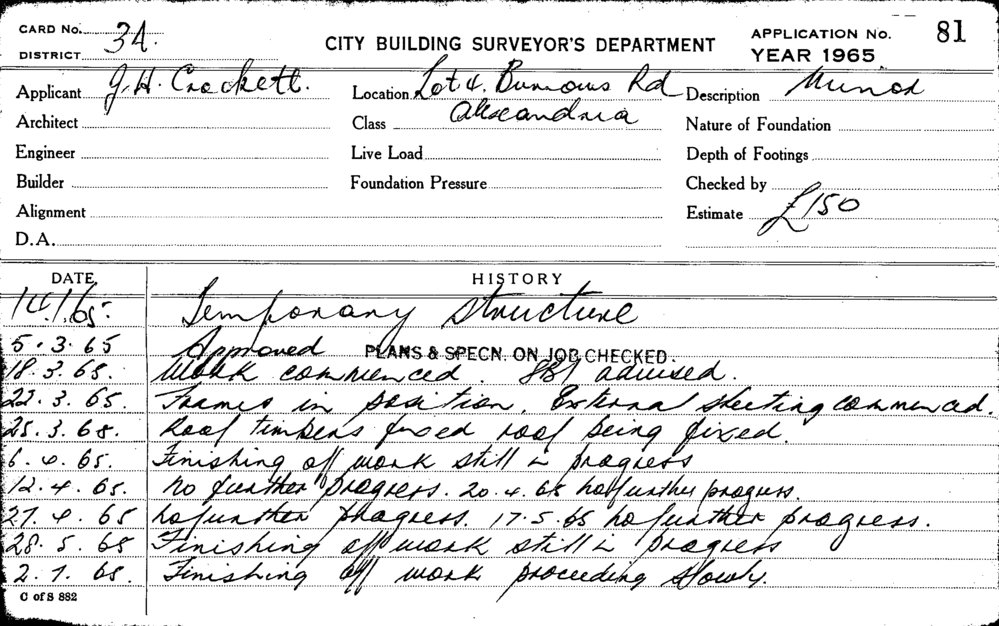 CARD No. 34.
DISTRICT
CITY BUILDING SURVEYOR'S DEPARTMENT
APPLICATION No. 81
YEAR 1965
Applicant J.H. Crockett.
Location Lot 4. Burrows Rd
Alexandria
Description Minor
Architect
Class
Nature of Foundation
Engineer
Live Load
Depth of Footings
Builder
Foundation Pressure
Checked by
Alignment
Estimate £150
D.A.
DATE HISTORY
14.1.65. Temporary structure
5.3.65 Approved PLANS & SPECN. ON JOB CHECKED.
18.3.65. Work commenced. advised.
22.3.65. Frames in position. External sheeting commenced.
25.3.65. Roof timbers fixed roof being fixed.
6.4.65. Finishing off work still in progress
12.4.65. No further progress. 20.4.65 No further progress.
27.4.65 No further progress. 17.5.65 No further progress.
28.5.65 Finishing off work still in progress
2.7.65. Finishing off work proceeding slowly.
C of S 882